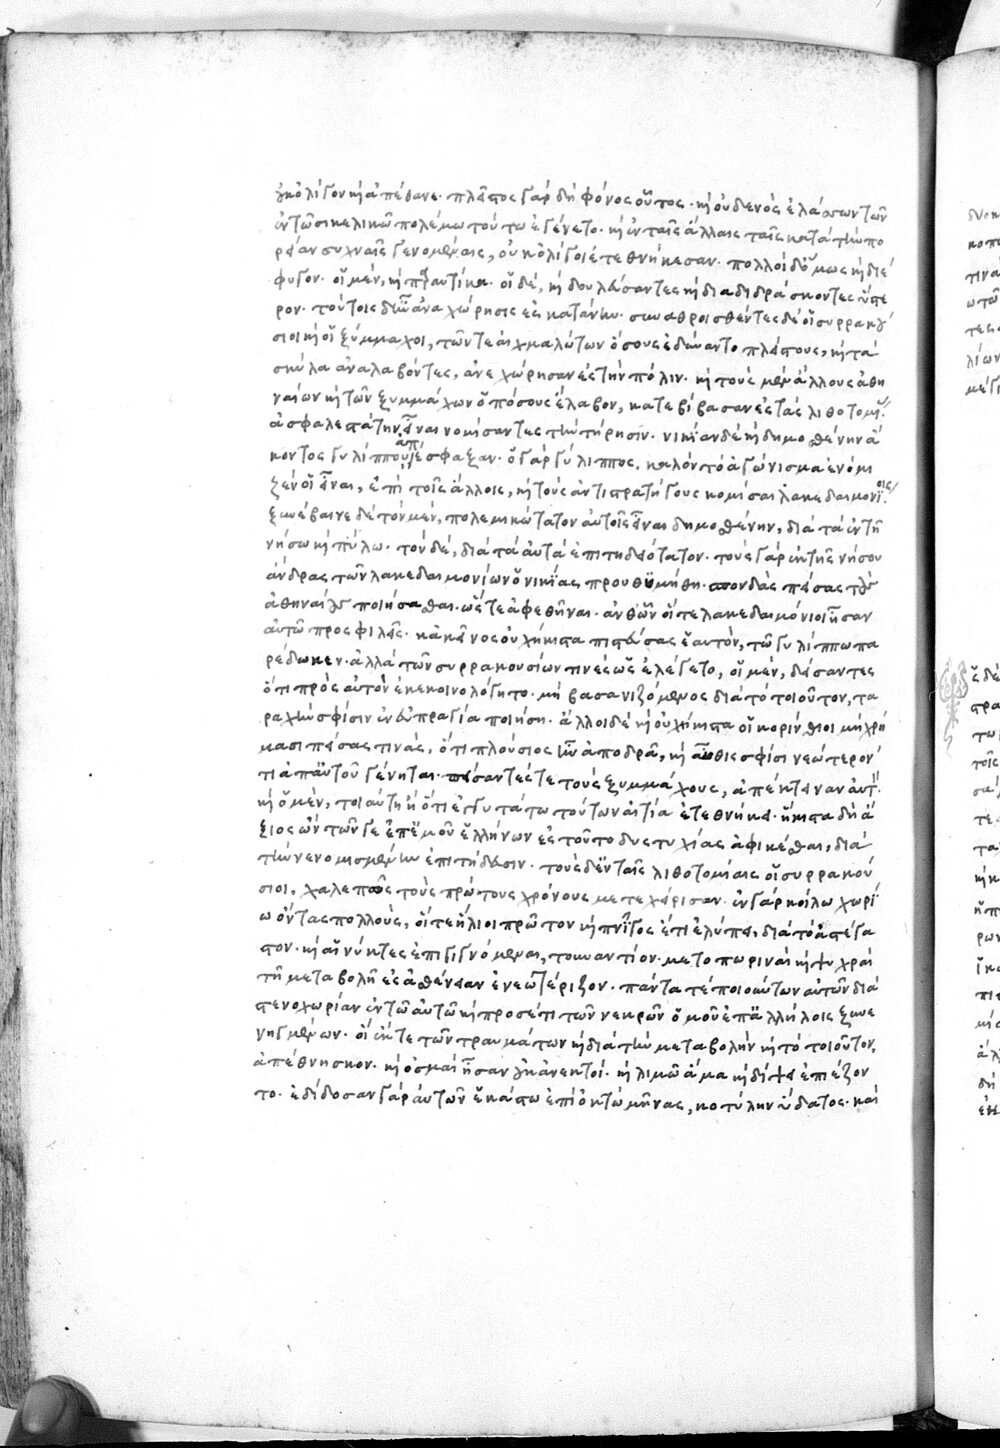 οὐκ ὀλίγον καὶ ἀπέθανε· πλεῖστος γὰρ δὴ φόνος οὗτος· καὶ οὐδενὸς ἐλάσσων τῶν
ἐν τῶ σικελικῶ πολέμω τούτω ἐγένετο· καὶ ἐν ταῖς ἄλλαις ταῖς κατὰ τὴν πο
ρείαν συχναῖς γενομέναις, οὐκ ὀλίγοι ἐτεθνήκεσαν· πολλοὶ δ' ὅμως καὶ διέ
φυγον· οἱ μὲν, καὶ παραυτίκα· οἱ δὲ, καὶ δουλεύσαντες καὶ διαδιδράσκοντες ὕστε
ρον· τούτοις δ' ἦν ἀναχώρησις ἐς κατάνην· ξυναθροισθέντες δὲ οἱ συρρακού
σιοι καὶ οἱ ξύμμαχοι, τῶν τε αἰχμαλώτων ὅσους ἐδύναντο πλείστους, καὶ τὰ
σκῦλα ἀναλαβόντες, ἀνεχώρησαν ἐς τὴν πόλιν· καὶ τοὺς μὲν ἄλλους ἀθη
ναίων καὶ τῶν ξυμμάχων ὁπόσους ἔλαβον, κατεβίβασαν ἐς τὰς λιθοτομί
ἀσφαλεστάτην εἶναι νομίσαντες τὴν τήρησιν· νικίαν δὲ καὶ δημοσθένην ἄ
κοντος γυλίππου, ἀπέσφαξαν· ὁ γὰρ γύλιππος, καλὸν τὸ ἀγώνισμα ἐνόμι
ζέν οἱ εἶναι, ἐπὶ τοῖς ἄλλοις, καὶ τοὺς ἀντιστρατήγους κομίσαι λακεδαιμονίοις.
ξυνέβαινε δὲ τὸν μὲν, πολεμιώτατον αὐτοῖς εἶναι δημοσθένην, διὰ τὰ ἐν τῆ
νήσω καὶ πύλω· τὸν δὲ, διὰ τὰ αὐτὰ ἐπιτηδειότατον· τοὺς γὰρ ἐκ τῆς νήσου
ἄνδρας τῶν λακεδαιμονίων ὁ νικίας προυθυμήθη· σπονδὰς πείσας τοὺς
ἀθηναίους ποιήσασθαι· ὥστε ἀφεθῆναι· ἀνθ' ὧν οἵ τε λακεδαιμόνιοι ἦσαν
αὐτῶ προσφιλεῖς· κἀκεῖνος οὐχ ἥκιστα πιστεύσας ἑαυτὸν, τῶ γυλίππω πα
ρέδωκεν· ἀλλὰ τῶν συρρακουσίων τινὲς ὡς ἐλέγετο, οἱ μὲν, δείσαντες
ὅτι πρὸς αὐτὸν ἐκεκοινολόγηντο· μὴ βασανιζόμενος διὰ τὸ τοιοῦτον, τα
ραχὴν σφίσιν ἐν εὐπραγία ποιήση· ἄλλοι δὲ καὶ οὐχ ἥκιστα οἱ κορίνθιοι μὴ χρή
μασι πείσας τινὰς, ὅτι πλούσιος ἦν ἀποδρᾶ, καὶ αὖθις σφίσι νεώτερόν
τι ἀπ' αὐτοῦ γένηται· πείσαντές τε τοὺς ξυμμάχους, ἀπέκτειναν αὐτ.
καὶ ὁ μὲν, τοιαύτη ἢ ὅτι ἐγγυτάτω τούτων αἰτία ἐτεθνήκει· ἥκιστα δὴ ἄ
ξιος ὢν τῶν γε ἐπ' ἐμοῦ ἑλλήνων ἐς τοῦτο δυστυχίας ἀφικέσθαι, διὰ
τὴν νενομισμένην ἐπιτήδευσιν· τοὺς δ' ἐν ταῖς λιθοτομίαις οἱ συρρακού
σιοι, χαλεπῶς τοὺς πρώτους χρόνους μετεχείρισαν· ἐν γὰρ κοίλω χωρί
ω ὄντας πολλοὺς, οἵ τε ἥλιοι πρῶτον καὶ πνῖγος ἔτι ἐλύπει, διὰ τὸ ἀστέγα
στον· καὶ αἱ νύκτες ἐπιγιγνόμεναι, τουναντίον· μετοπωριναὶ καὶ ψυχραὶ
τῆ μεταβολῆ ἐς ἀσθένειαν ἐνεωτέριζον· πάντα τέ ποιούντων αὐτῶν διὰ
στενοχωρίαν ἐν τῶ αὐτῶ καὶ προσέτι τῶν νεκρῶν ὁμοῦ ἐπ' ἀλλήλοις ξυννε
νημένων· οἳ ἔκ τε τῶν τραυμάτων καὶ διὰ τὴν μεταβολὴν καὶ τὸ τοιοῦτον,
ἀπέθνησκον· καὶ ὀσμαὶ ἦσαν οὐκ ἀνεκτοί· καὶ λιμῶ ἅμα καὶ δίψει ἐπιέζον
το· ἐδίδοσαν γὰρ αὐτῶν ἑκάστω ἐπὶ ὀκτὼ μῆνας, κοτύλην ὕδατος· καὶ